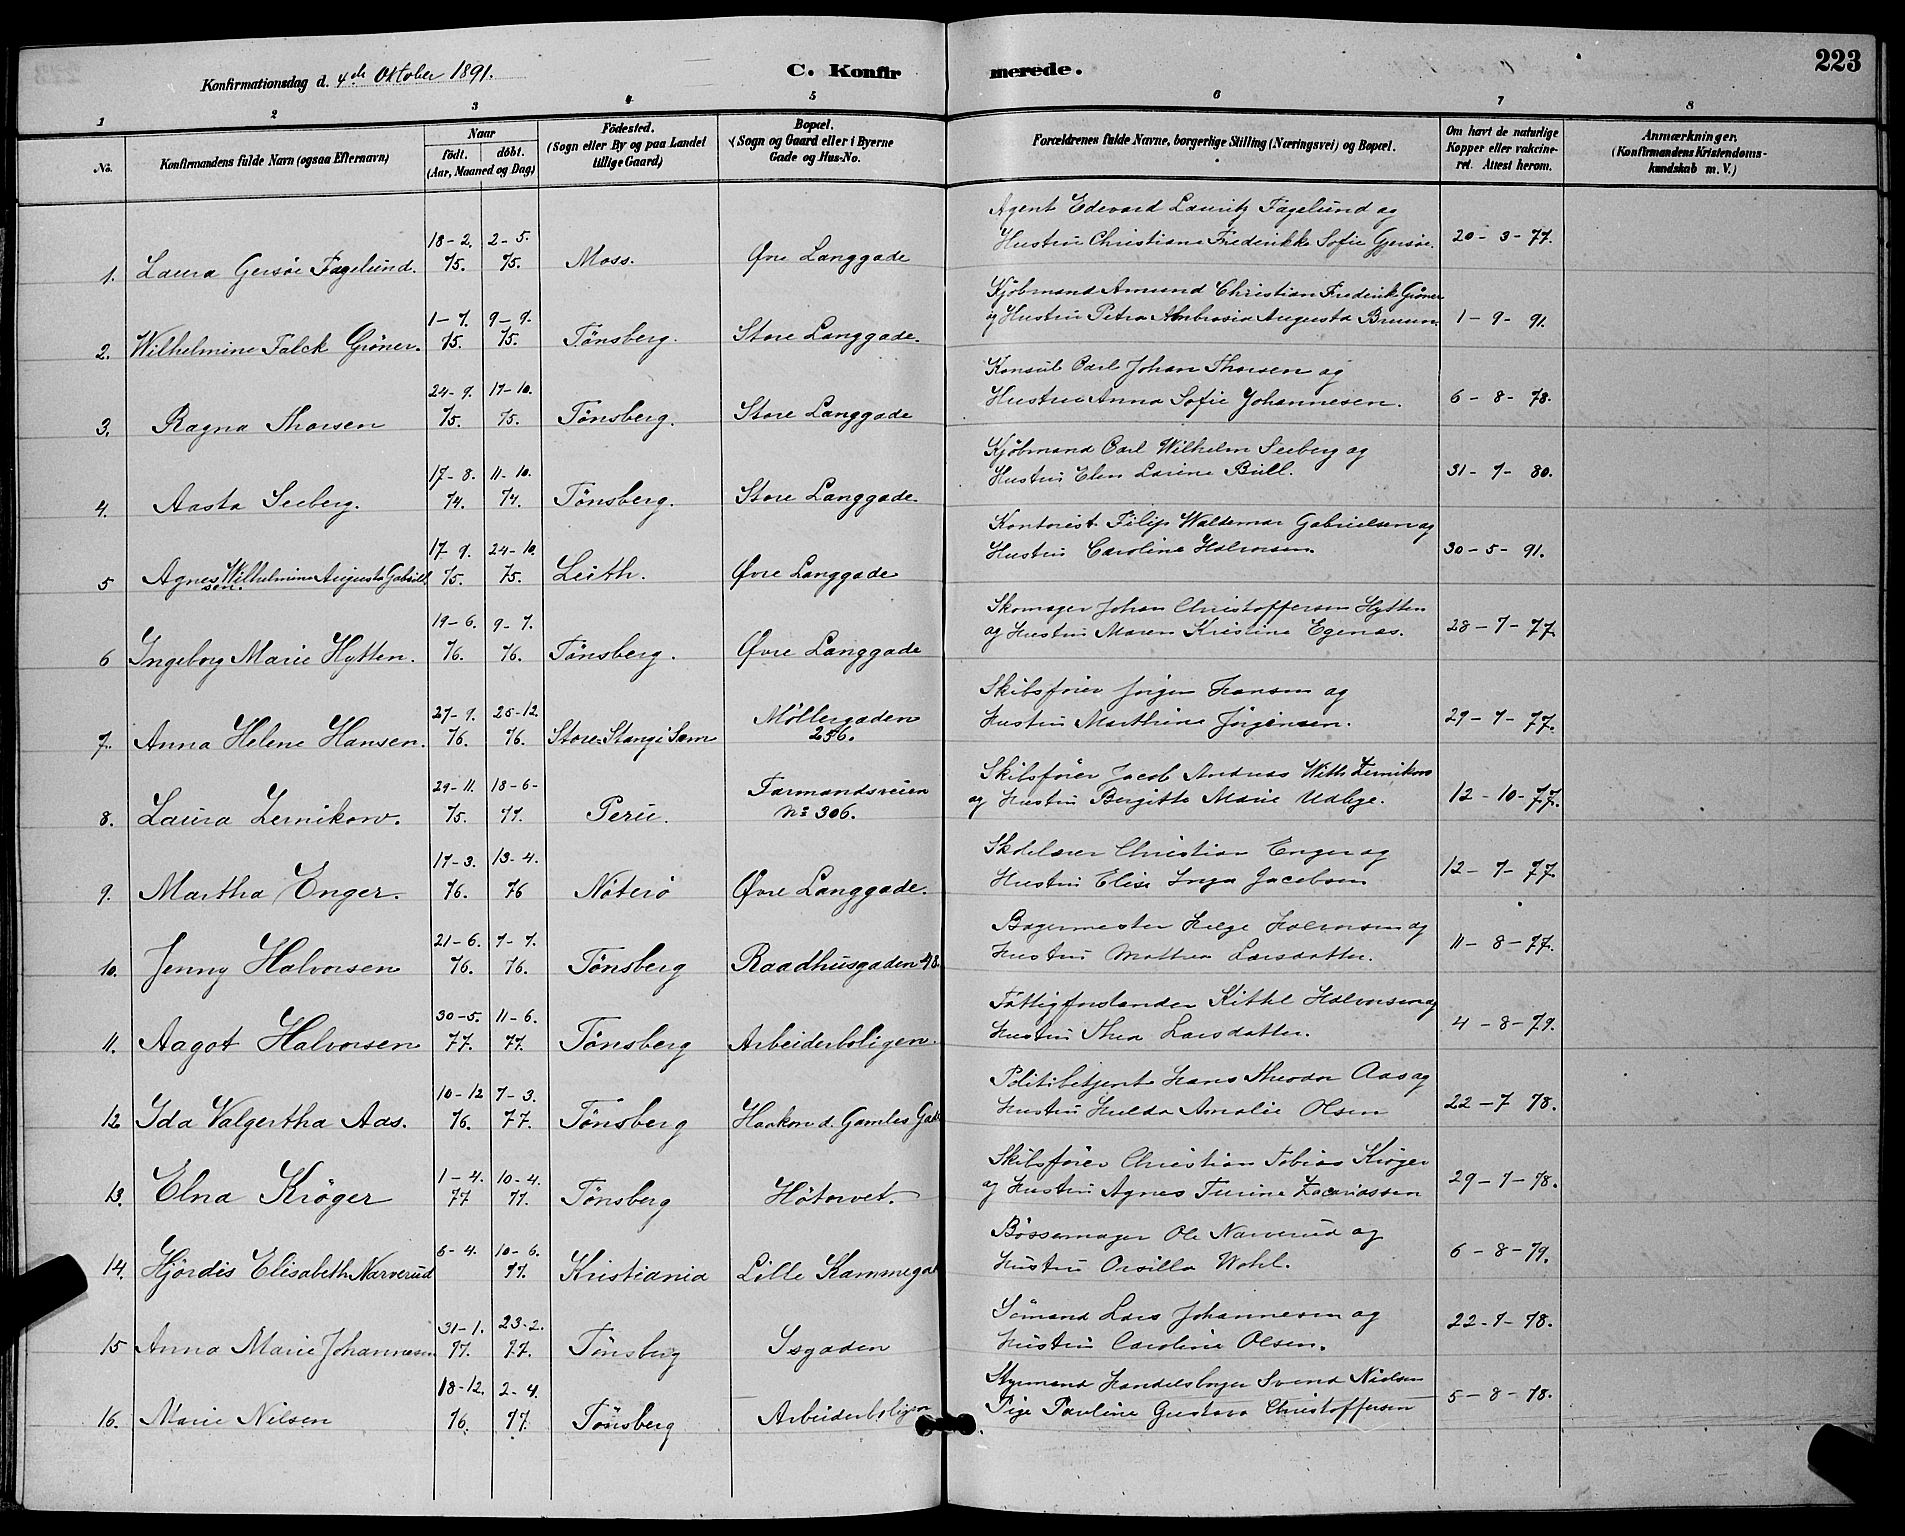 Konfirmationsdag d. 4de Oktober 1891.
C. Konfirmerede.
223
1 2 3 4 5 6 7 8
No.
Konfirmandens fulde Navn (ogsaa Efternavn)
Naar
födt. döbt.
(Aar, Maaned og Dag)
Födested.
(Sogn eller By og paa Landet
tillige Gaard)
Bopæl.
(Sogn og Gaard eller i Byerne
Gade og Hus-No.
Forældrenes fulde Navne, borgerlige Stilling (Næringsvei) og Bopæl.
Om havt de naturlige
Kopper eller vakcine-
ret. Attest herom.
Anmærkninger.
(Konfirmandens Kristendoms-
kundskab m. V.)
Agent Edevard Lauritz Fagelund og
18-2. 2-5. Hustru Christiane Frederikke Sofie Gjersöe. 20-3-77.
1. Laura Gersöe Fagelund. 75. 75. Moss. Øvre Langgade
Kjöbmand Amund Christian Frederik Gröner
1-7. 9-9. og Hustru Petra Ambrosia Augusta Bruun. 1-9-91.
2. Wilhelmine Falck Gröner. 75. 75. Tönsberg. Store Langgade.
Konsul Carl Johan Thorsen og
24-9. 17-10. Hustru Anna Sofie Johannesen. 6-8-78.
3. Ragna Thorsen 75. 75. Tönsberg. Store Langgade
Kjöbmand Carl Wilhelm Seeberg og
17-8. 11-10. Hustru Elen Larine Bull. 31-7-80.
4. Aasta Seeberg. 74. 74. Tönsberg. Store Langgade.
Kontorist Filip Waldemar Gabrielsen og
17 9. 24-10. Hustru Caroline Halvorsen. 30-5-91.
5 Agnes Wilhelmine Augusta Gabriel
sen. 75. 75. Leith. Øvre Langgade
Skomager Johan Christoffersen Hytten
19-6. 9-7. og Hustru Maren Kristine Egenæs. 28-7-77.
6 Ingeborg Marie Hytten. 76. 76. Tönsberg. Øvre Langgade
Skibsförer Jörgen Hansen og
27-9. 25-12. Möllergaden Hustru Marthine Jörgensen. 29-7-77.
7. Anna Helene Hansen. 76. 76. Store Stang i Sem 256.
Skibsförer Jacob Andreas With Zernikow
29-11. 18-6- Farmandsveien og Hustru Bergitte Marie 12-10-77.
8. Laura Zernikow. 75. 77. Peru. No 306.
Skolelærer Christian Enger og
17-3. 13-4. Hustru Elise Inga Jacobsen 12-7-77.
9. Martha Enger. 76. 76 Nöterö Øvre Langgade.
Bagermester Helge Halvorsen og
21-6. 7-7. Hustru Mathea Larsdatter. 11-8-77.
10. Jenny Halvorsen 76. 76. Tönsberg Raadhusgaden 48.
Fattigforstander Kittel Halvorsen og
30-5. 11-6. Hustru Thea Larsdatter. 4-8-79.
11. Aagot Halvorsen 77. 77. Tönsberg Arbeiderboligen.
Politibetjent Hans Theodor Aas og
10-12 7-3. Hustru Hulda Amalie Olsen 22-7 78.
12 Ida Valgertha Aas. 76. 77. Tönsberg Haakon d. Gamles Gade
Skibsförer Christian Tobias Kröger
1-4. 10-4. og Hustru Agnes Turine Zacariassen 29-7-78.
13. Elna Kröger 77 77. Tönsberg Hötorvet.
Bössemager Ole Narverud og
6-4. 10-6. Hustru Orsilla Wohl. 6-8-79.
14. Hjördis Elisabeth Narverud 77. Kristiania Lille Kammegade
Sömand Lars Johannesen og
31-1. 23-2. Hustru Caroline Olsen. 22-7-78.
15 Anna Marie Johannesen 77. 77. Tönsberg Isgaden
Styrmand Handelsborger Svend Nielsen
18-12. 2-4. Pige Pauline Gustava Christoffersen 5-8-78.
16. Marie Nilsen 76. 77. Tönsberg Arbeiderboligen